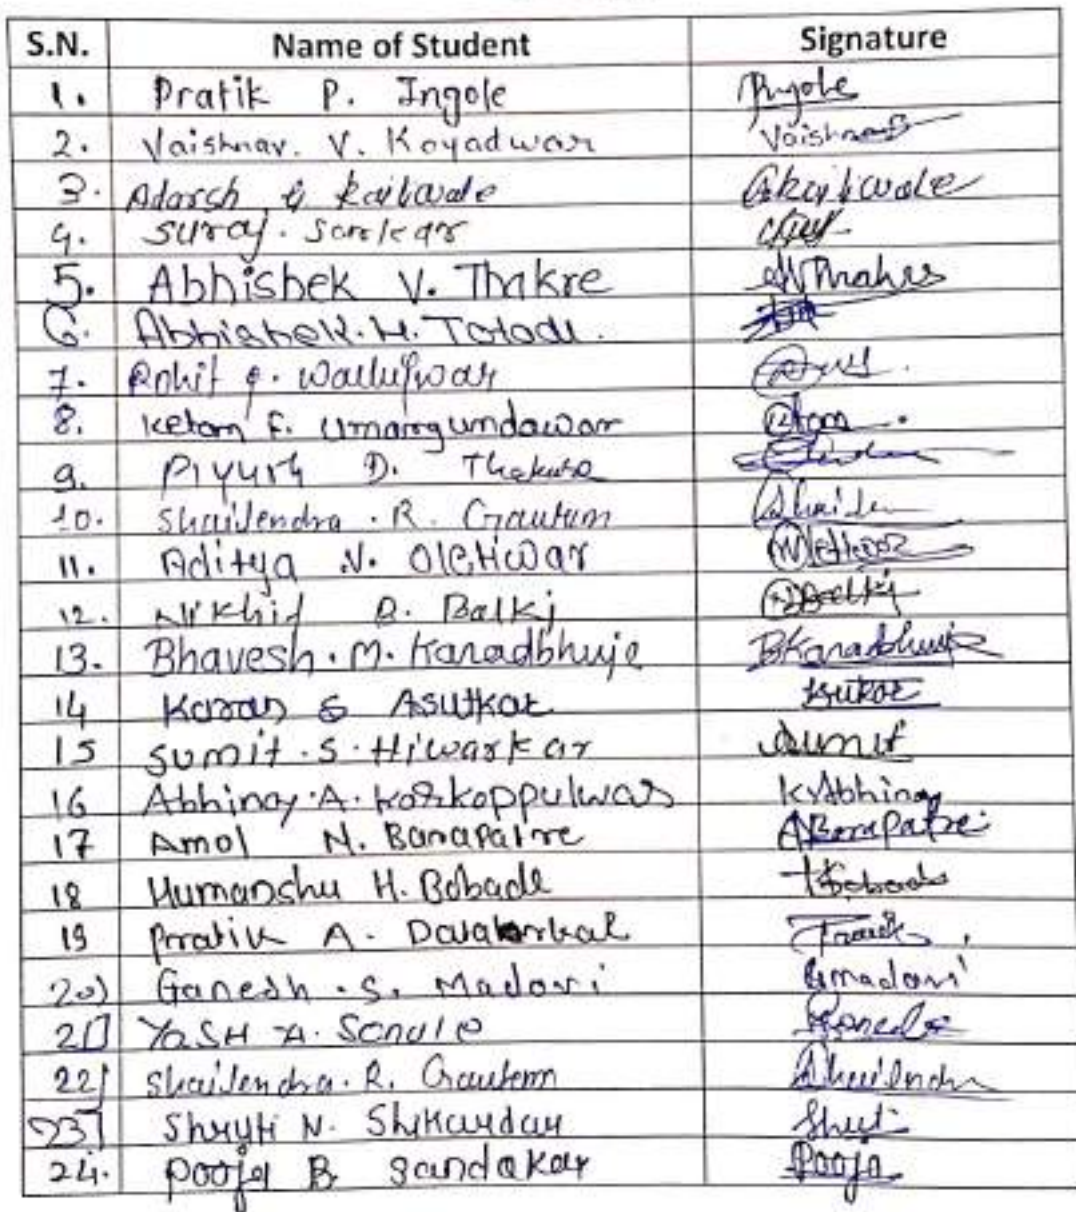 S.N. Name of Student Signature
1. Pratik P. Ingole Pingole
2. Vaishnav. V. Koyadwar Vaishnav
3. Adarsh G Kailwade Gkailwade
4. Suraj. Sarkar
5. Abhishek V. Thakre AVThakre
6. Abhishek. H. Totode.
7. Rohit P.
8. Ketan F. Umargundawar
9. Piyush D. Thakure
10. Shailendra. R. Gautam Shailen
11. Aditya N. Oletiwar
12. Nikhil B. Balki
13. Bhavesh. M. Karadbhuje BKaradbhuje
14 Karan G Asutkar
15 Sumit. S. Hiwarkar Sumit
16 Abhinay. A. Korkoppulwar K.Abhinay
17 Amol N. Banapatre ABanapatre
18 Humanshu H. Bobade HBobade
19 Pratik A.
20) Ganesh. S. Madavi Gmadavi
21] YaSH A. Sonule
22] Shailendra. R. Gautam Shailendra
23] Shruti N. Shikardar Shruti
24. Pooja B. gandakar Pooja